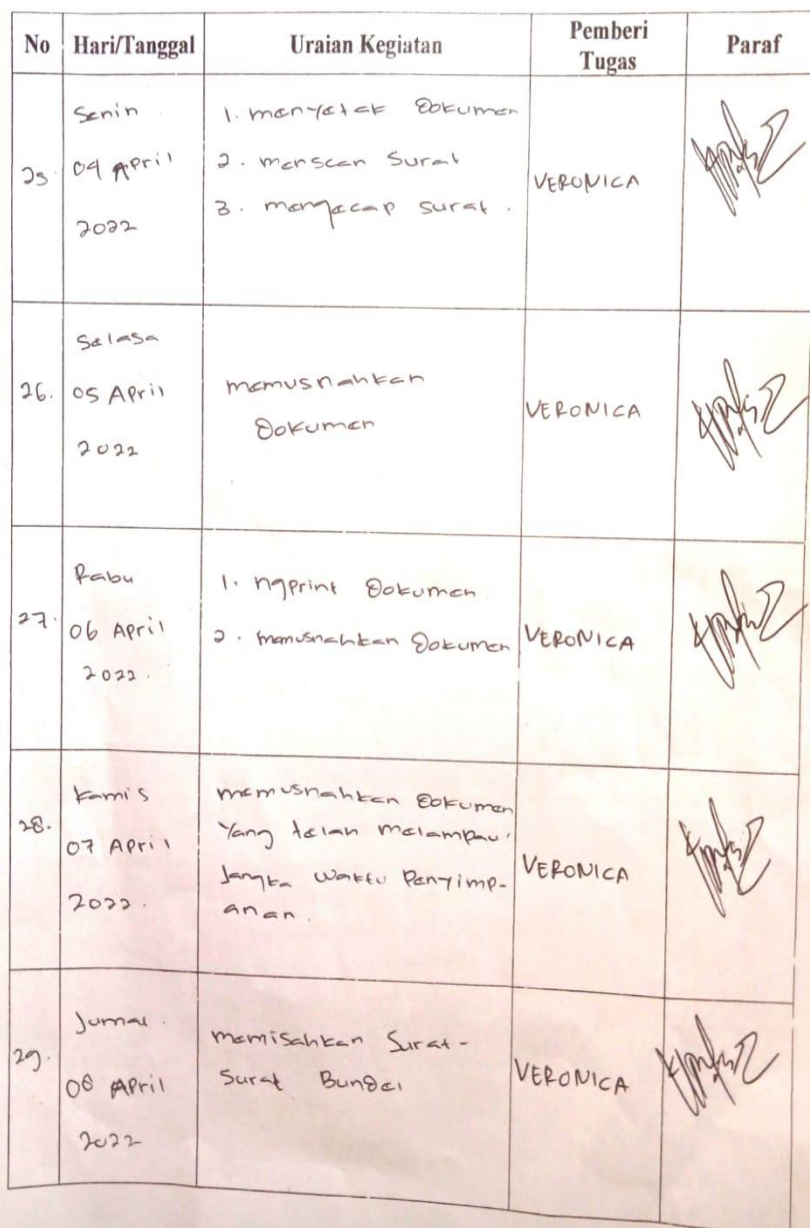 No Hari/Tanggal Uraian Kegiatan Pemberi Tugas Paraf
25.
Senin
04 April
2022
1. menyetak Dokumen
2. menscan Surat
3. mengecap surat.
VERONICA
26.
Selasa
05 April
2022
memusnahkan
Dokumen
VERONICA
27.
Rabu
06 April
2022.
1. ngprint Dokumen
2. memusnahkan Dokumen
VERONICA
28.
Kamis
07 April
2022.
memusnahken Dokumen
Yang telah Melampaui
Jangka waktu Penyimp-
anan.
VERONICA
29.
Jumat.
08 April
2022
memisahkan Surat-
Surat Bundel
VERONICA